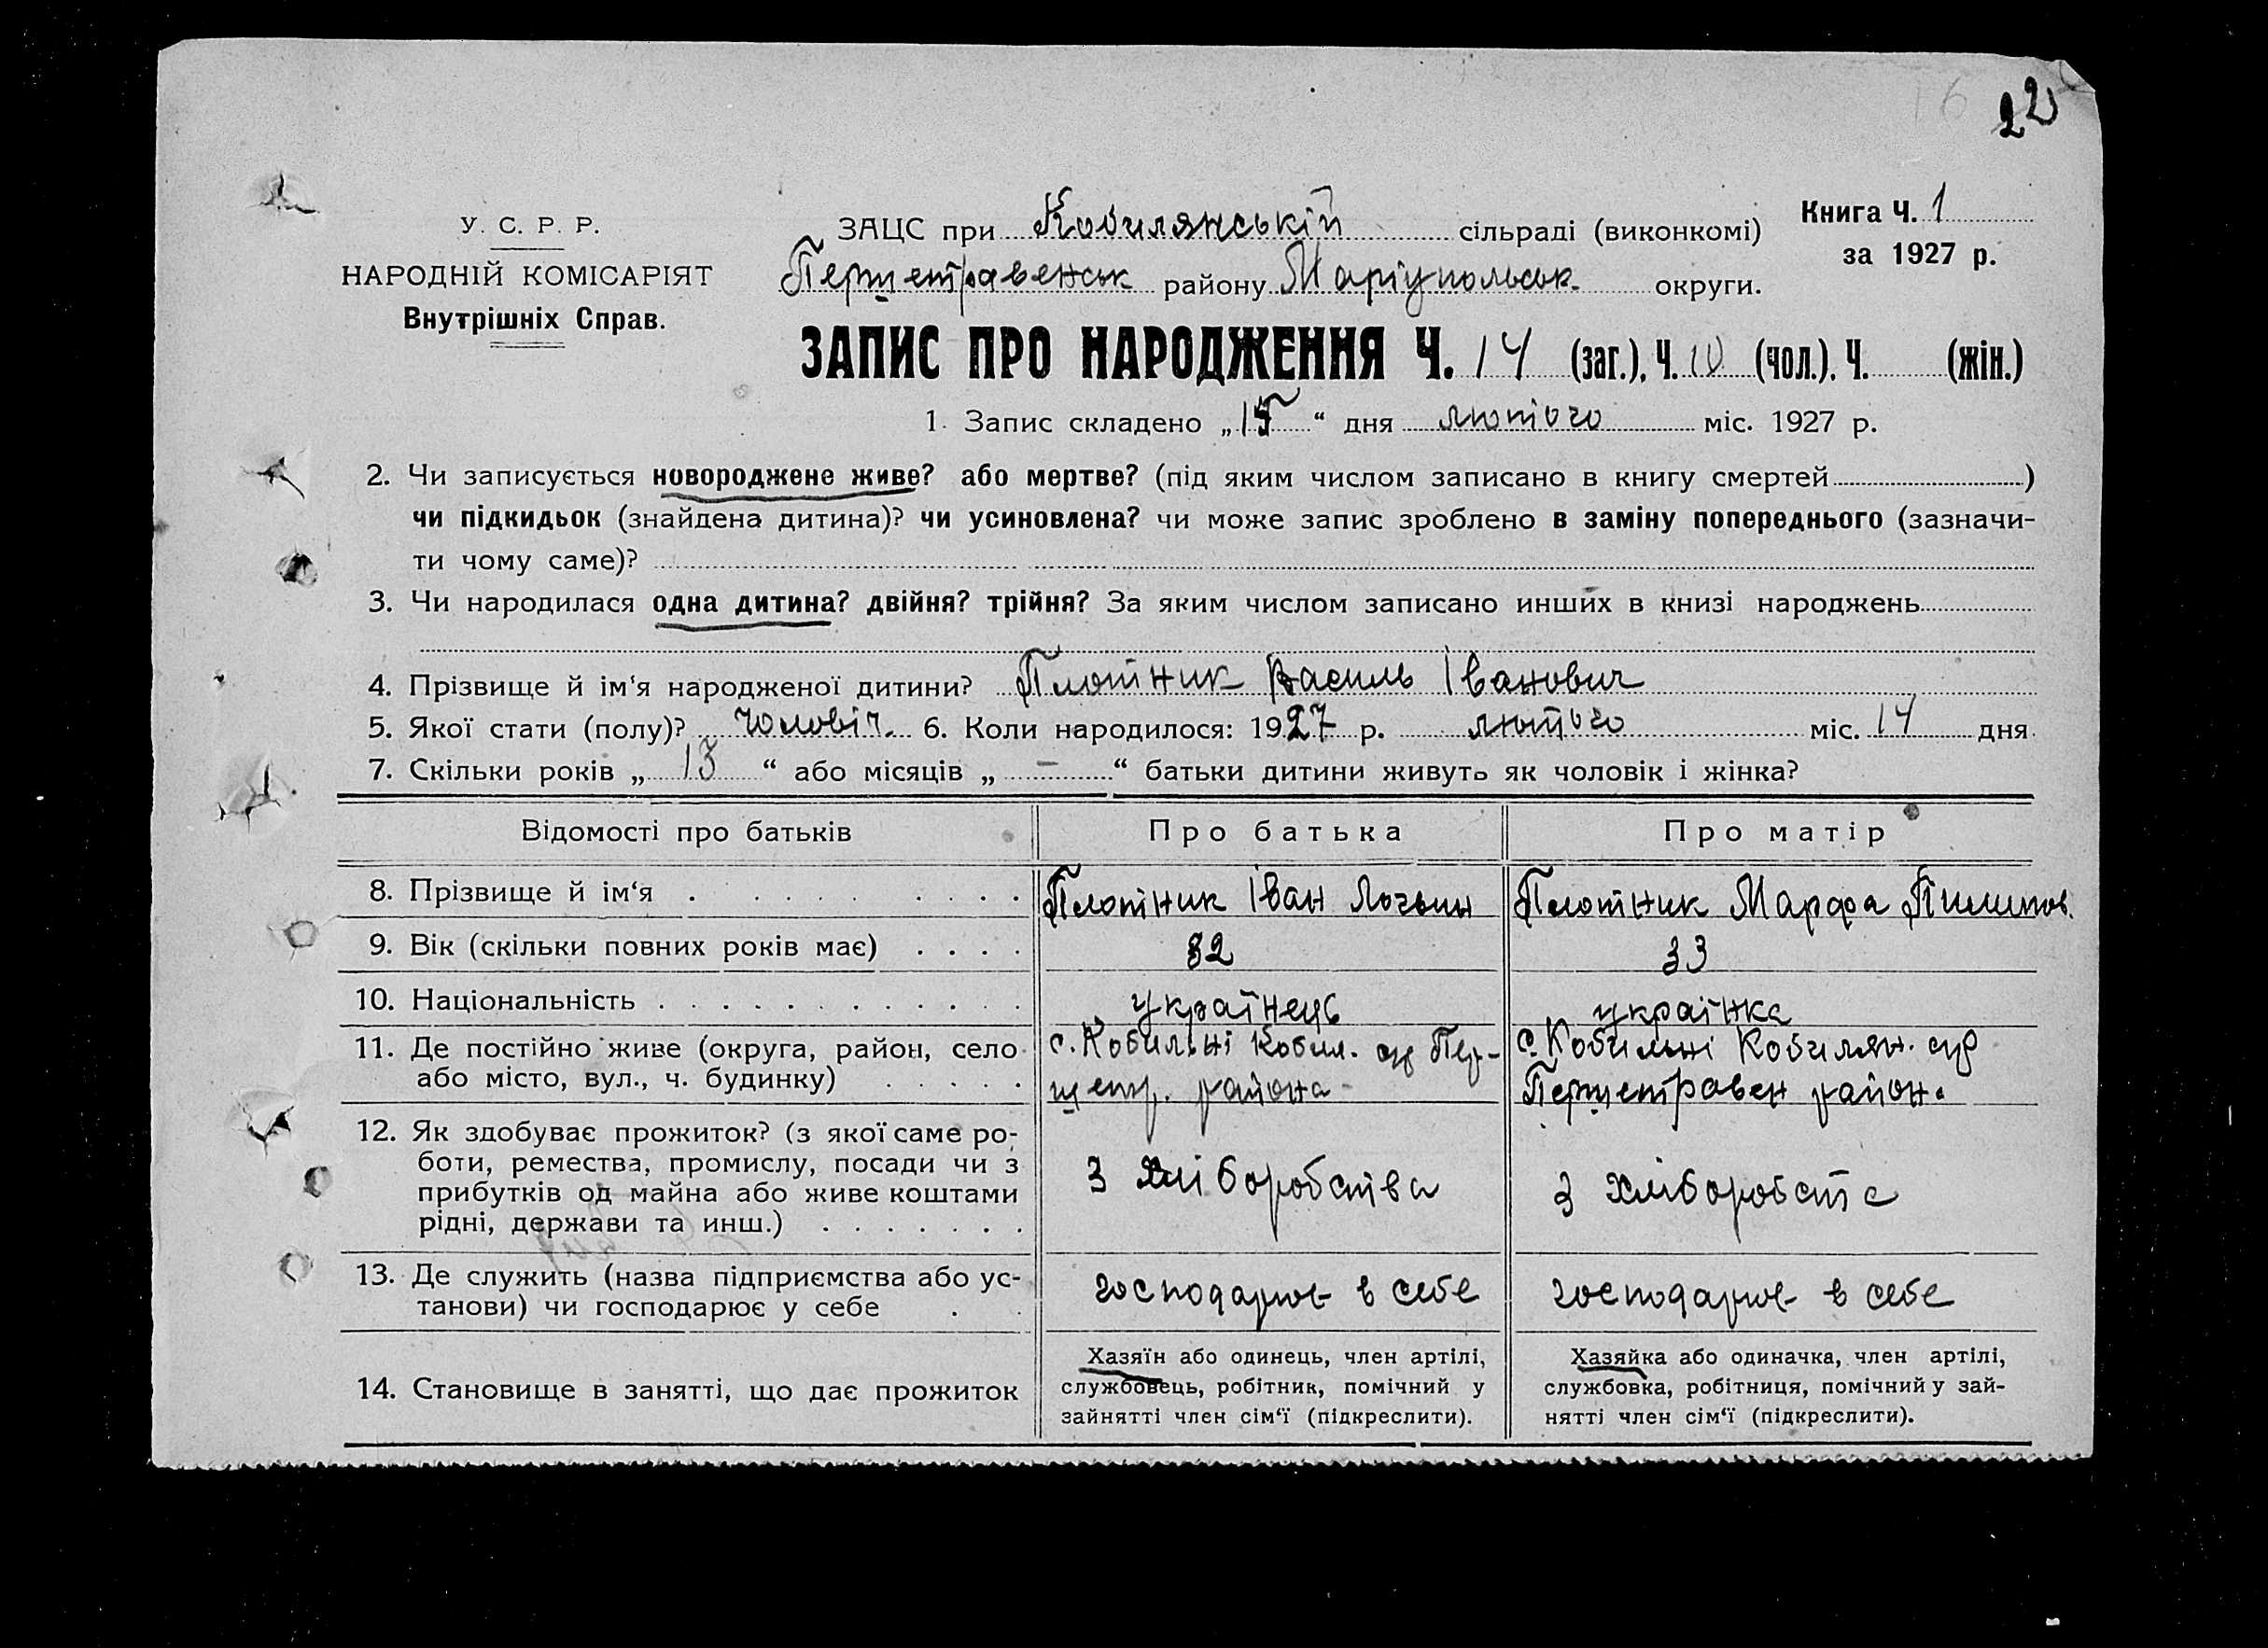 16 22
У. С. Р. Р.
НАРОДНІЙ КОМІСАРІЯТ
Внутрішніх Справ.
ЗАЦС при Кобилянській сільраді (виконкомі)
Першетравенськ району Маріупольськ. округи.
Книга Ч. 1
за 1927 р.
ЗАПИС ПРО НАРОДЖЕННЯ Ч. 14 (заг.), Ч. 10 (чол.). Ч. (жін.)
1. Запис складено „15“ дня лютого міс. 1927 р.
2. Чи записується новороджене живе? або мертве? (під яким числом записано в книгу смертей )
чи підкидьок (знайдена дитина)? чи усиновлена? чи може запис зроблено в заміну попереднього (зазначи-
ти чому саме)?
3. Чи народилася одна дитина? двійня? трійня? За яким числом записано инших в книзі народжень
4. Прізвище й ім‘я народженої дитини? Плотник Василь Іванович
5. Якої стати (полу)? чоловіч. 6. Коли народилося: 1927 р. лютого міс. 14 дня
7. Скільки років „ 13 “ або місяців „ – “ батьки дитини живуть як чоловік і жінка?
Відомості про батьків Про батька Про матір
8. Прізвище й ім‘я Плотник Іван Плотник Марфа
9. Вік (скільки повних років має) 32 33
10. Національність українець українка
11. Де постійно живе (округа, район, село
або місто, вул., ч. будинку)
с. Кобильні Кобил. с/р Пер-
шетр. района
с. Кобильні Кобилян. с/р
Першетравен район.
12. Як здобуває прожиток? (з якої саме ро-
боти, ремества, промислу, посади чи з
прибутків од майна або живе коштами
рідні, держави та инш.)
З хліборобства
З хліборобста
13. Де служить (назва підприємства або ус-
танови) чи господарює у себе
господарює в себе
господарює в себе
14. Становище в занятті, що дає прожиток
Хазяїн або одинець, член артілі,
службовець, робітник, помічний у
зайнятті член сім‘ї (підкреслити).
Хазяйка або одиначка, член артілі,
службовка, робітниця, помічний у зай-
нятті член сім‘ї (підкреслити).